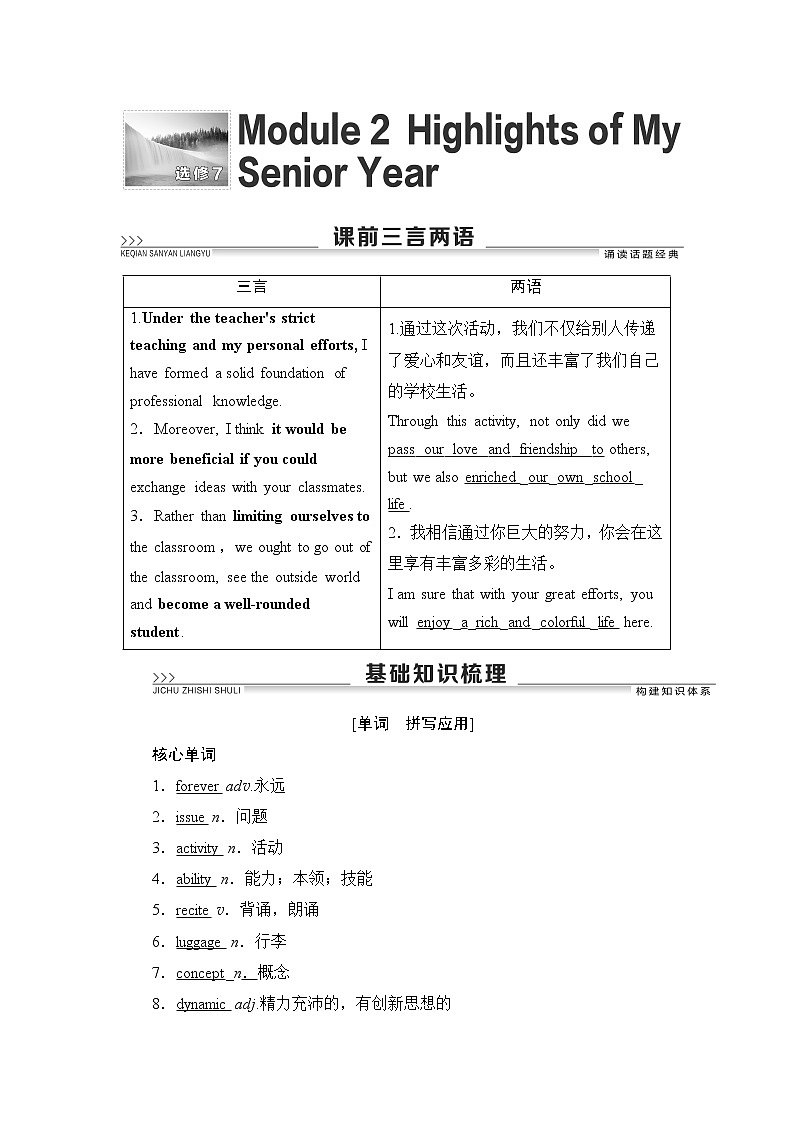 Module 2 Highlights of My
Senior Year
选修7
>>> 课前三言两语
KEQIAN SANYAN LIANGYU 诵读话题经典
三言
1.Under the teacher's strict
teaching and my personal efforts, I
have formed a solid foundation of
professional knowledge.
2．Moreover, I think it would be
more beneficial if you could
exchange ideas with your classmates.
3．Rather than limiting ourselves to
the classroom，we ought to go out of
the classroom, see the outside world
and become a well-rounded
student.
两语
1.通过这次活动，我们不仅给别人传递
了爱心和友谊，而且还丰富了我们自己
的学校生活。
Through this activity, not only did we
pass_our_love_and_friendship_to others,
but we also enriched_our_own_school_
life.
2．我相信通过你巨大的努力，你会在这
里享有丰富多彩的生活。
I am sure that with your great efforts, you
will enjoy_a_rich_and_colorful_life here.
>>> 基础知识梳理
JICHU ZHISHI SHULI 构建知识体系
[单词 拼写应用]
核心单词
1．forever adv.永远
2．issue n．问题
3．activity n．活动
4．ability n．能力；本领；技能
5．recite v．背诵，朗诵
6．luggage n．行李
7．concept_n．概念
8．dynamic adj.精力充沛的，有创新思想的